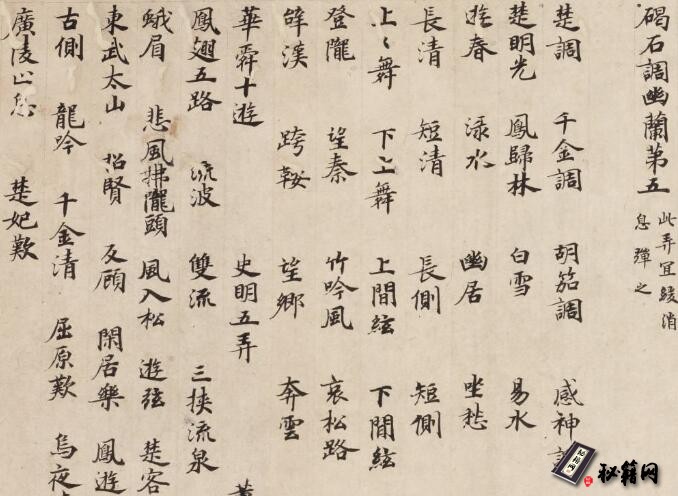 碣石調幽蘭第五
此弄宜緩消
息彈之
楚調 千金調 胡笳調 感神調
楚明光 鳳歸林 白雪 易水
遊春 淥水 幽居 坐愁
長清 短清 長側 短側
上上舞 下上舞 上間絃 下間絃
登隴 望秦 竹吟風 哀松路
辞漢 跨鞍 望鄉 奔雲
華舜十遊 史明五弄
鳳翅五路 流波 雙流 三挾流泉
蛾眉 悲風拂隴頭 風入松 遊弦 楚客
東武太山 招賢 反顧 閑居樂 鳳遊
古側 龍吟 千金清 屈原歎 烏夜
廣陵止息 楚妃歎
秘籍网